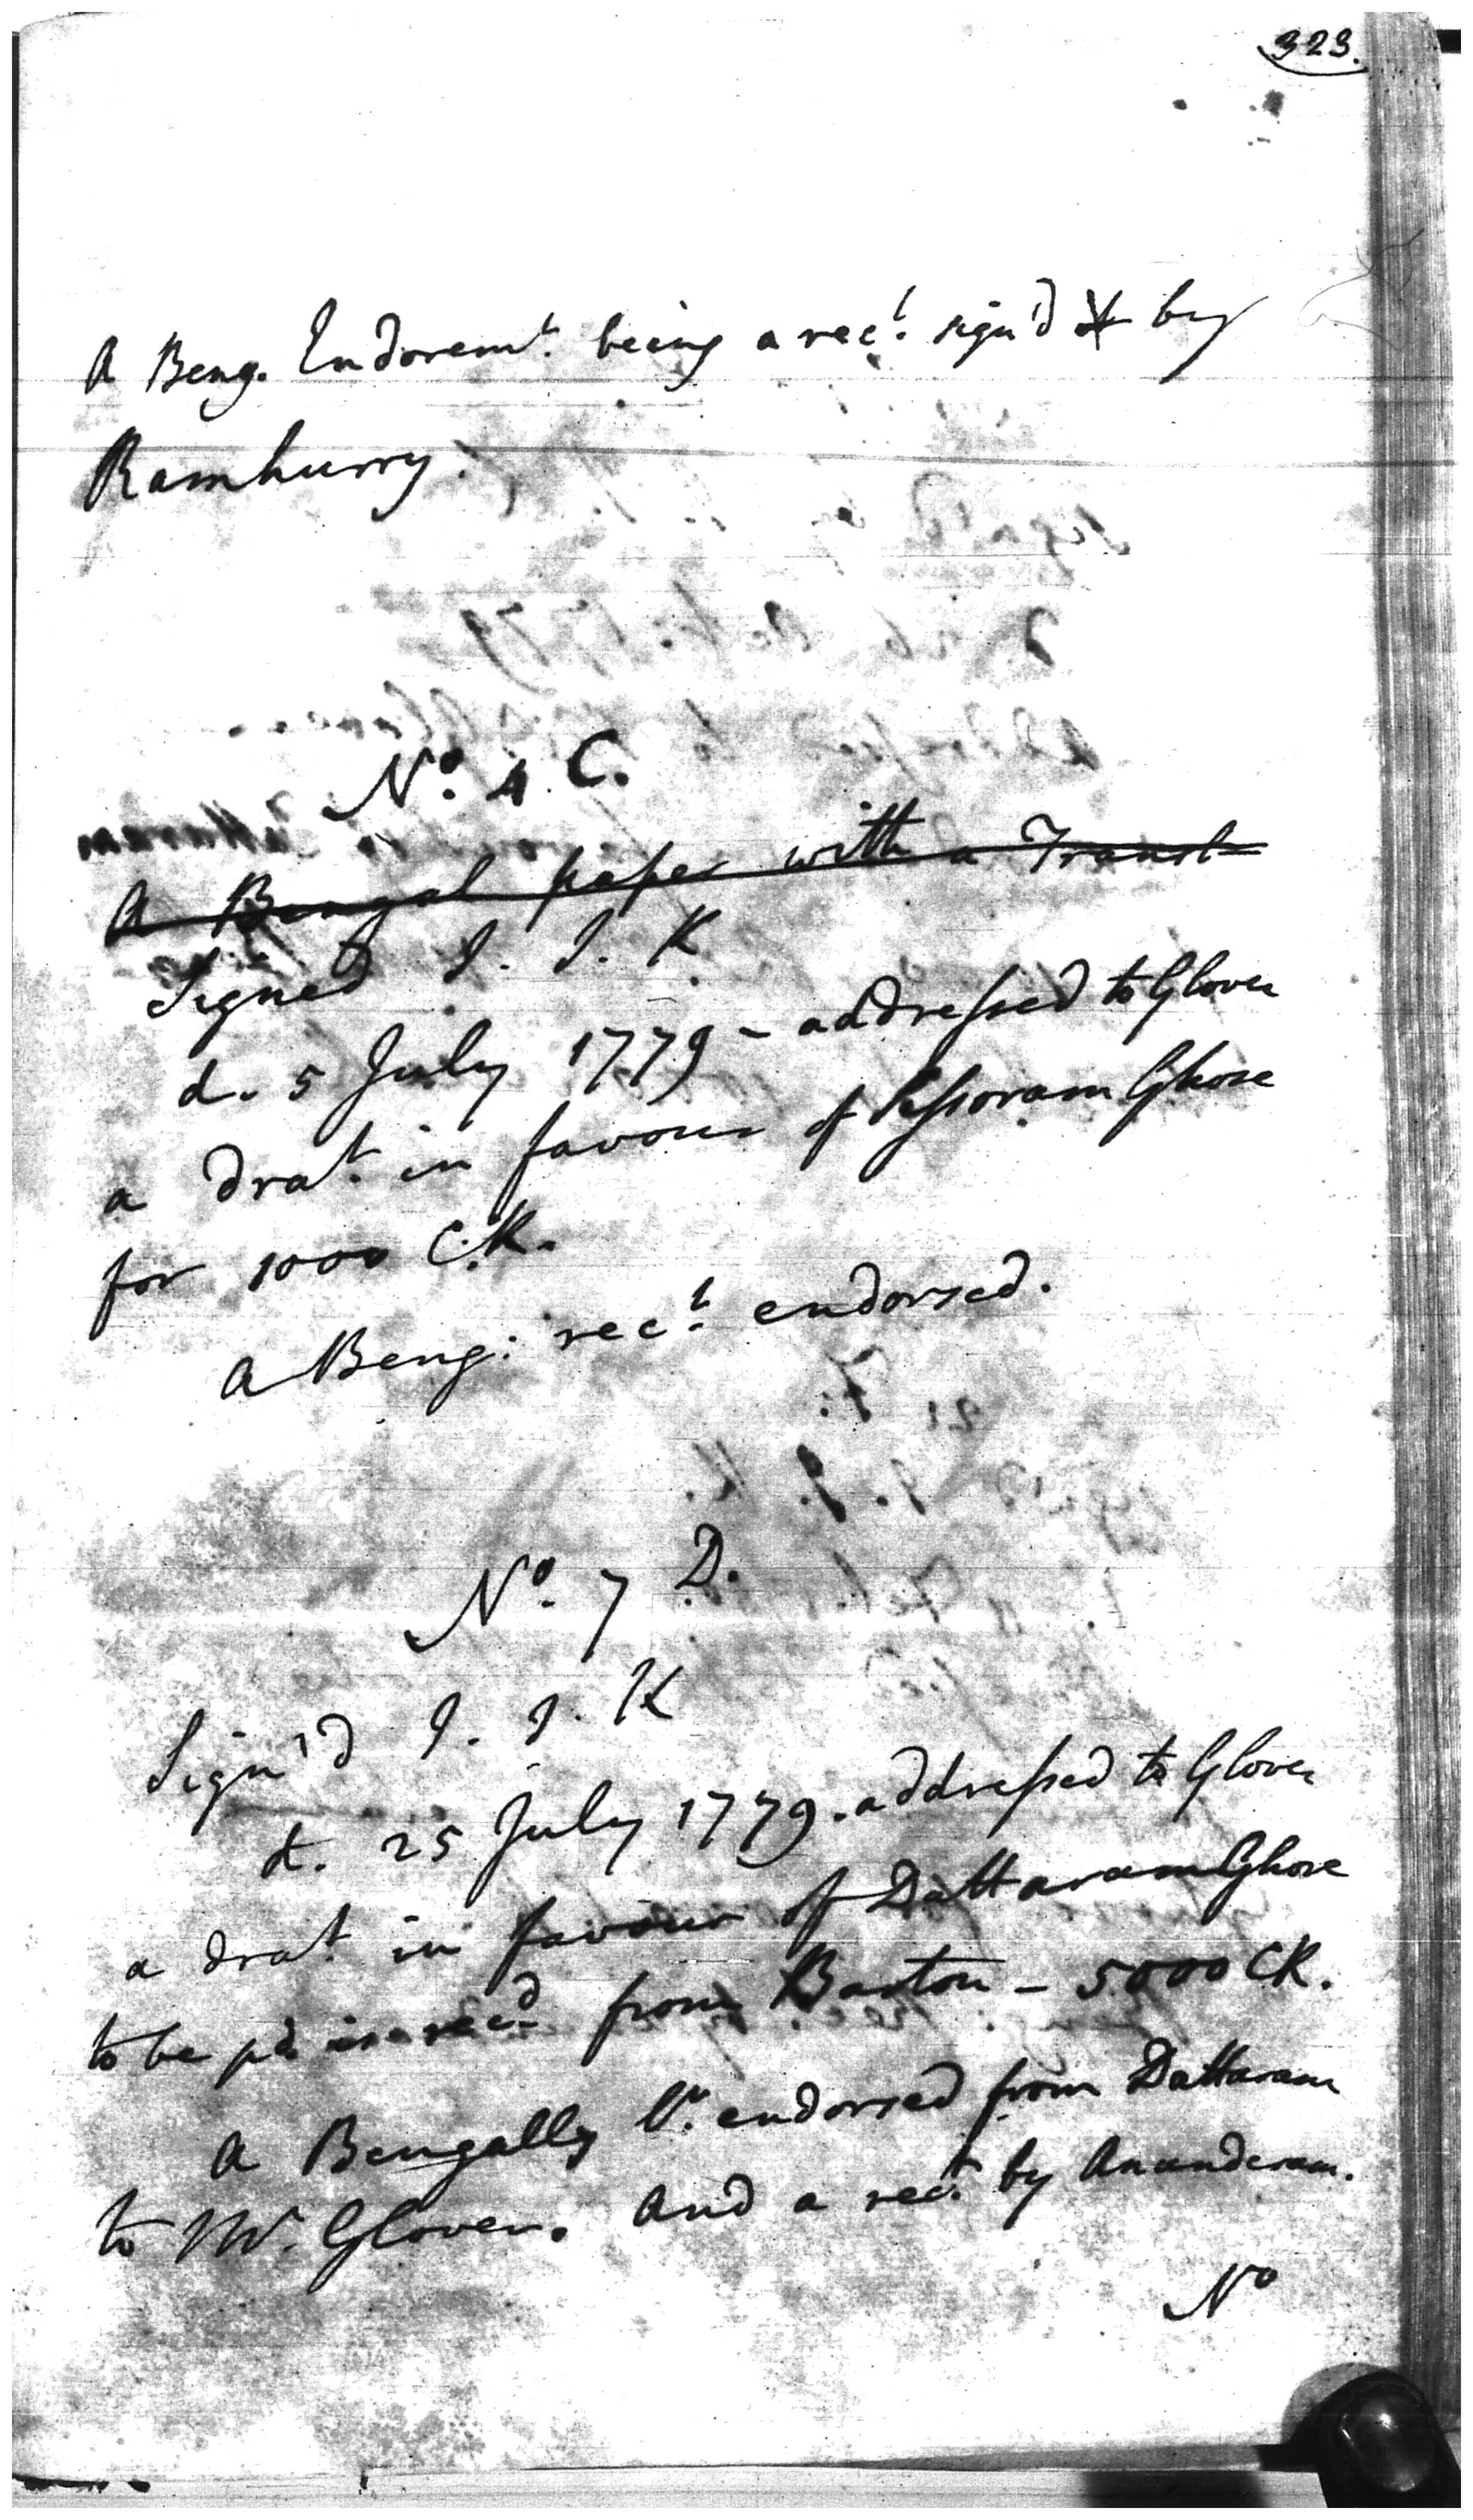 323.
A Beng. Endorsemt. being a rect. sign'd by
Ramhurry.
No. 4. C.
A Bengal paper with a Transl
Signed J. J. K
d. 5 July 1779 - addressed to Glover
a drat. in favour of Kissoram Ghose
for 1000 C.R.
A Beng: rect. endorsed.
No. 7 D.
Sign'd J. J. K
d. 25 July 1779. addressed to Glover
a drat in favour of Dattaram Ghose
to be pd. recd. from Barton - 5000 CR.
A Bengally lr. endorsed from Dattaram
to Mr. Glover. And a rect. by Ananderam.
No